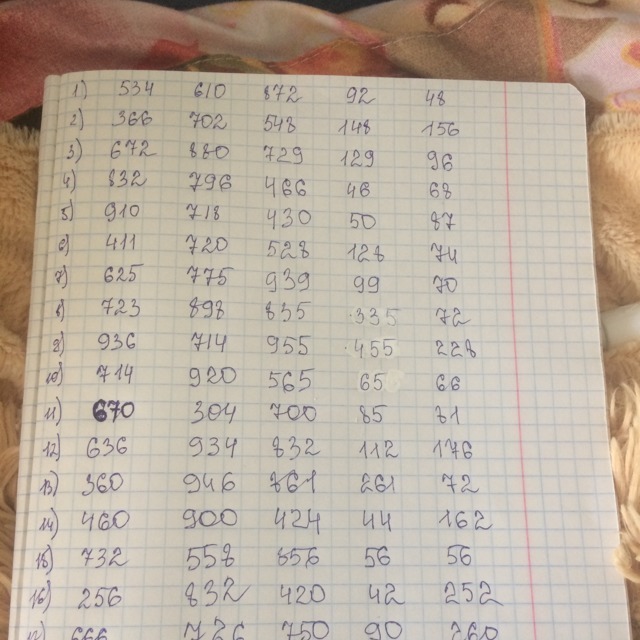 1) 534 610 872 92 48
2) 366 702 548 148 156
3) 672 880 729 129 96
4) 832 796 466 46 68
5) 910 718 430 50 87
6) 411 720 528 128 74
7) 625 775 939 99 70
8) 723 898 835 335 72
9) 936 714 955 455 228
10) 714 920 565 65 66
11) 670 304 700 85 81
12) 636 934 832 112 176
13) 360 946 861 261 72
14) 460 900 424 44 162
15) 732 558 856 56 56
16) 256 832 420 42 252
17) 666 726 750 90